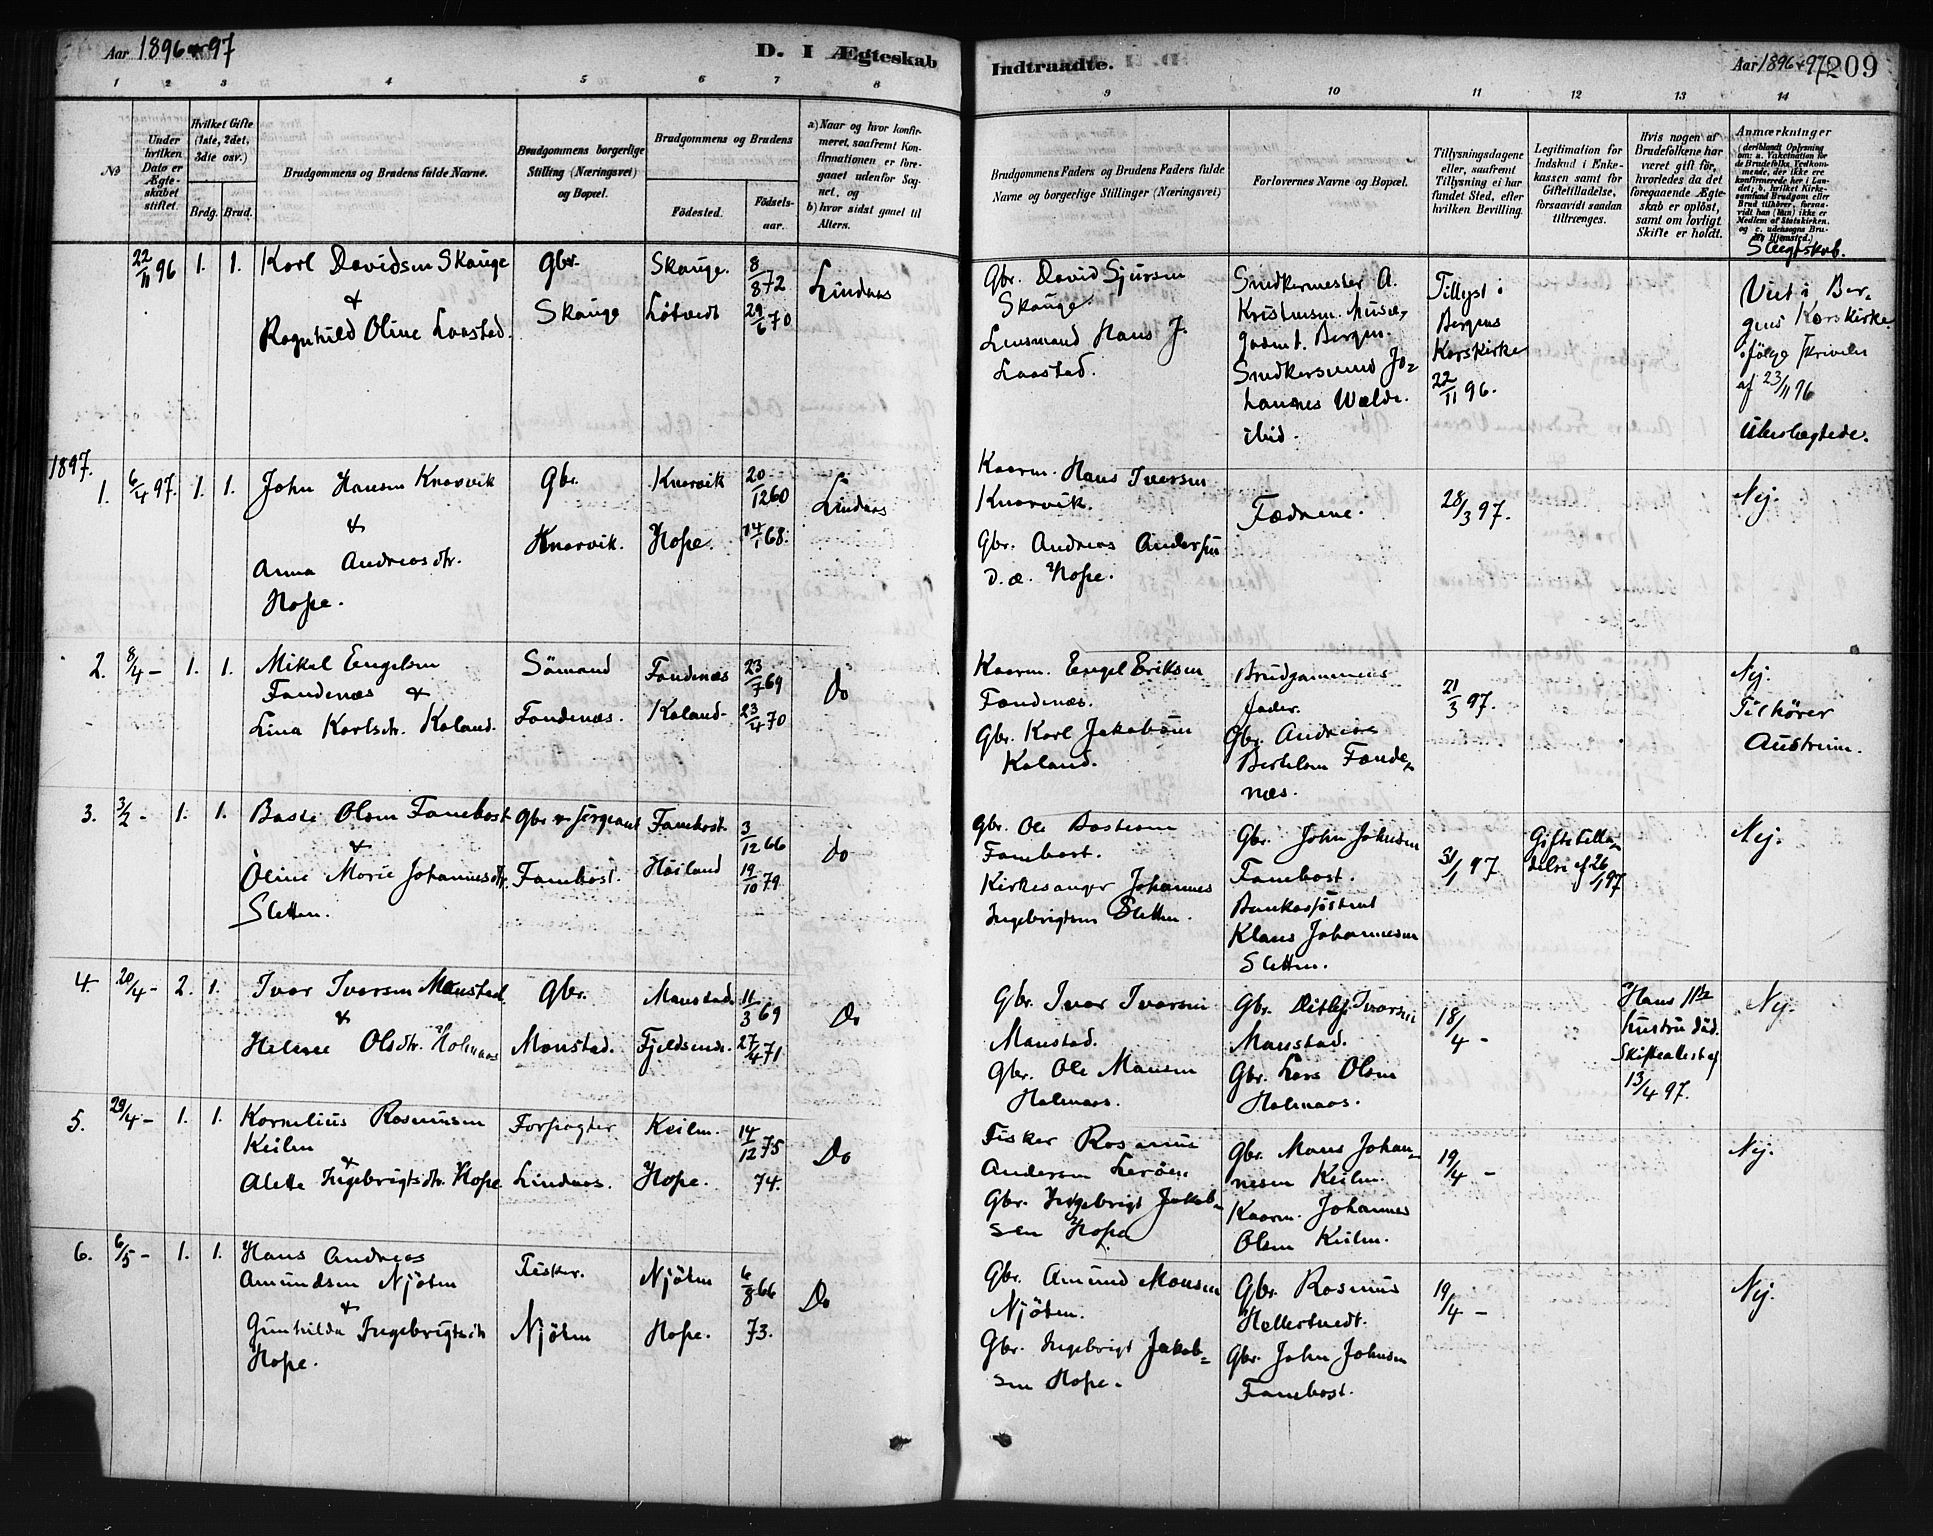 Aar 1896 & 97
D. I Ægteskab
Indtraadte.
Aar 1896 & 97
209
1 2 3 4 5 6 7 8
9 10 11 12 13 14
No
Under hvilken Dato er Ægteskabet stiftet.
Hvilket Gifte (1ste, 2det, 3die osv.)
Brdg. Brud.
Brudgommens og Brudens fulde Navne.
Brudgommens borgerlige Stilling (Næringsvei) og Bopæl.
Brudgommens og Brudens
Fødested.
Fødselsaar.
a) Naar og hvor konfirmeret, saafremt Konfirmationen er foregaaet udenfor Sognet, og
b) hvor sidst gaaet til Alters.
Brudgommens Faders og Brudens Faders fulde Navne og borgerlige Stillinger (Næringsvei)
Forlovernes Navne og Bopæl.
Tillysningsdagene eller, saafremt Tillysning ei har fundet Sted, efter hvilken Bevilling.
Legitimation for Indskud i Enkekassen samt for Giftetilladelse, forsaavidt saadan tiltrænges.
Hvis nogen af Brudefolkene har været gift før, hvorledes da det foregaaende Ægteskab er opløst, samt om lovligt Skifte er holdt.
Anmærkninger
(deriblandt Oplysning om: a. Vakcination for de Brudefolks Vedkommende, der ikke ere konfirmerede her i Landet; b. hvilket Kirkesamfund Brudgom eller Brud tilhører, forsaavidt han (hun) ikke er Medlem af Statskirken. og c. udensogns Bruds Hjemsted.)
Slegtskab.
22/11 96 1. 1. Karl Davidsen Skauge
&
Ragnhild Oline Laastad.
Gbr.
Skauge
Skauge.
Løtvedt
8/8 72
29/6 70
Lindaas
Gbr. David Sjursen
Skauge.
Lensmand Hans J.
Laastad.
Snedkermester A.
Kristensen
Bergen.
Snedkersvend Jo-
hannes Walde.
ibid.
Tillyst i
Bergens
Korskirke
22/11 96.
Viet i Ber-
gens Korskirke
ifølge skrivelse
af 23/11 96
Ubeslegtede.
1897.
1. 6/4 97. 1. 1. John Hansen Knarvik
&
Anna Andreasdtr.
Hope.
Gbr.
Knarvik.
Knarvik
Hope.
20/12 60
14/1 68.
Lindaas
Kaarm. Hans Iversen
Knarvik.
Gbr. Andreas Andersen
d.æ. Hope.
Fædrene.
28/3 97.
Nej.
2. 8/4 – 1. 1. Mikal Engelsen
Fondenæs &
Lina Karlsdtr. Kaland.
Sömand
Fondenæs.
Fondenæs
Kaland.
23/7 69
23/4 70
do
Kaarm. Engel Eriksen
Fondenæs.
Gbr. Karl Jakobsen
Kaland.
Brudgommens
fader.
Gbr. Andreas
Bertelsen Fonde-
næs.
21/3 97.
Nej.
Tilhører
Austrim.
3. 3/2 – 1. 1. Baste Olsen Fanebost
&
Oline Marie Johannesdtr.
Sletten.
Gbr & sergeant
Fanebost.
Fanebost
Høiland
3/12 66
19/10 79
do
Gbr. Ole Bastesen
Fanebost.
Kirkesanger Johannes
Ingebrigtsen Sletten.
Gbr. John Johnsen
Fanebost.
Bankassistent
Klaus Johannesen
Sletten.
31/1 97
Giftetilla-
delse af 26/1 97
Nej.
4. 20/4 – 2. 1. Ivar Iversen Monstad
&
Helene Olsdtr. Holmaas
Gbr.
Monstad.
Monstad.
Fjeldsende.
11/3 69
27/4 71
Do
Gbr. Ivar Iversen
Monstad.
Gbr. Ole Monsen
Holmaas.
Gbr. Ditlef Iversen
Monstad.
Gbr. Lars Olsen
Holmaas.
18/4 –
Hans 1ste
hustru död.
Skifteattest af
13/4 97.
Nej.
5. 29/4 – 1. 1. Kornelius Rasmussen
Keilen
&
Alette Ingebrigtsdtr. Hope
Forpagter
Lindaas.
Keilen.
Hope.
14/12 75
74.
Do
Fisker Rasmus
Andersen Leröen
Gbr. Ingebrigt Jakob-
sen Hope
Gbr. Mons Johan-
nesen Keilen.
Kaarm. Johannes
Olsen Keilen.
19/4 –
Nej.
6. 6/5 – 1. 1. Hans Andreas
Amundsen Njöten
&
Gunhilda Ingebrigtsdtr
Hope.
Fisker.
Njöten
Njöten
Hope.
6/8 66
73.
Do
Gbr. Amund Monsen
Njöten.
Gbr. Ingebrigt Jakob-
sen Hope.
Gbr. Rasmus
Hellertvedt.
Gbr. John Johnsen
Fanebost.
19/4 –
Nej.